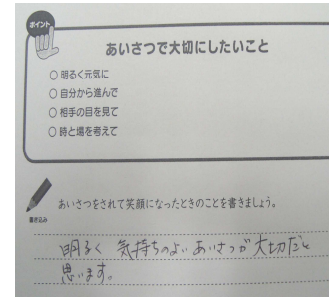 ポイント
あいさつで大切にしたいこと
○ 明るく元気に
○ 自分から進んで
○ 相手の目を見て
○ 時と場を考えて
書き込み
あいさつをされて笑顔になったときのことを書きましょう。
明るく 気持ちのよい あいさつが大切だと
思います。